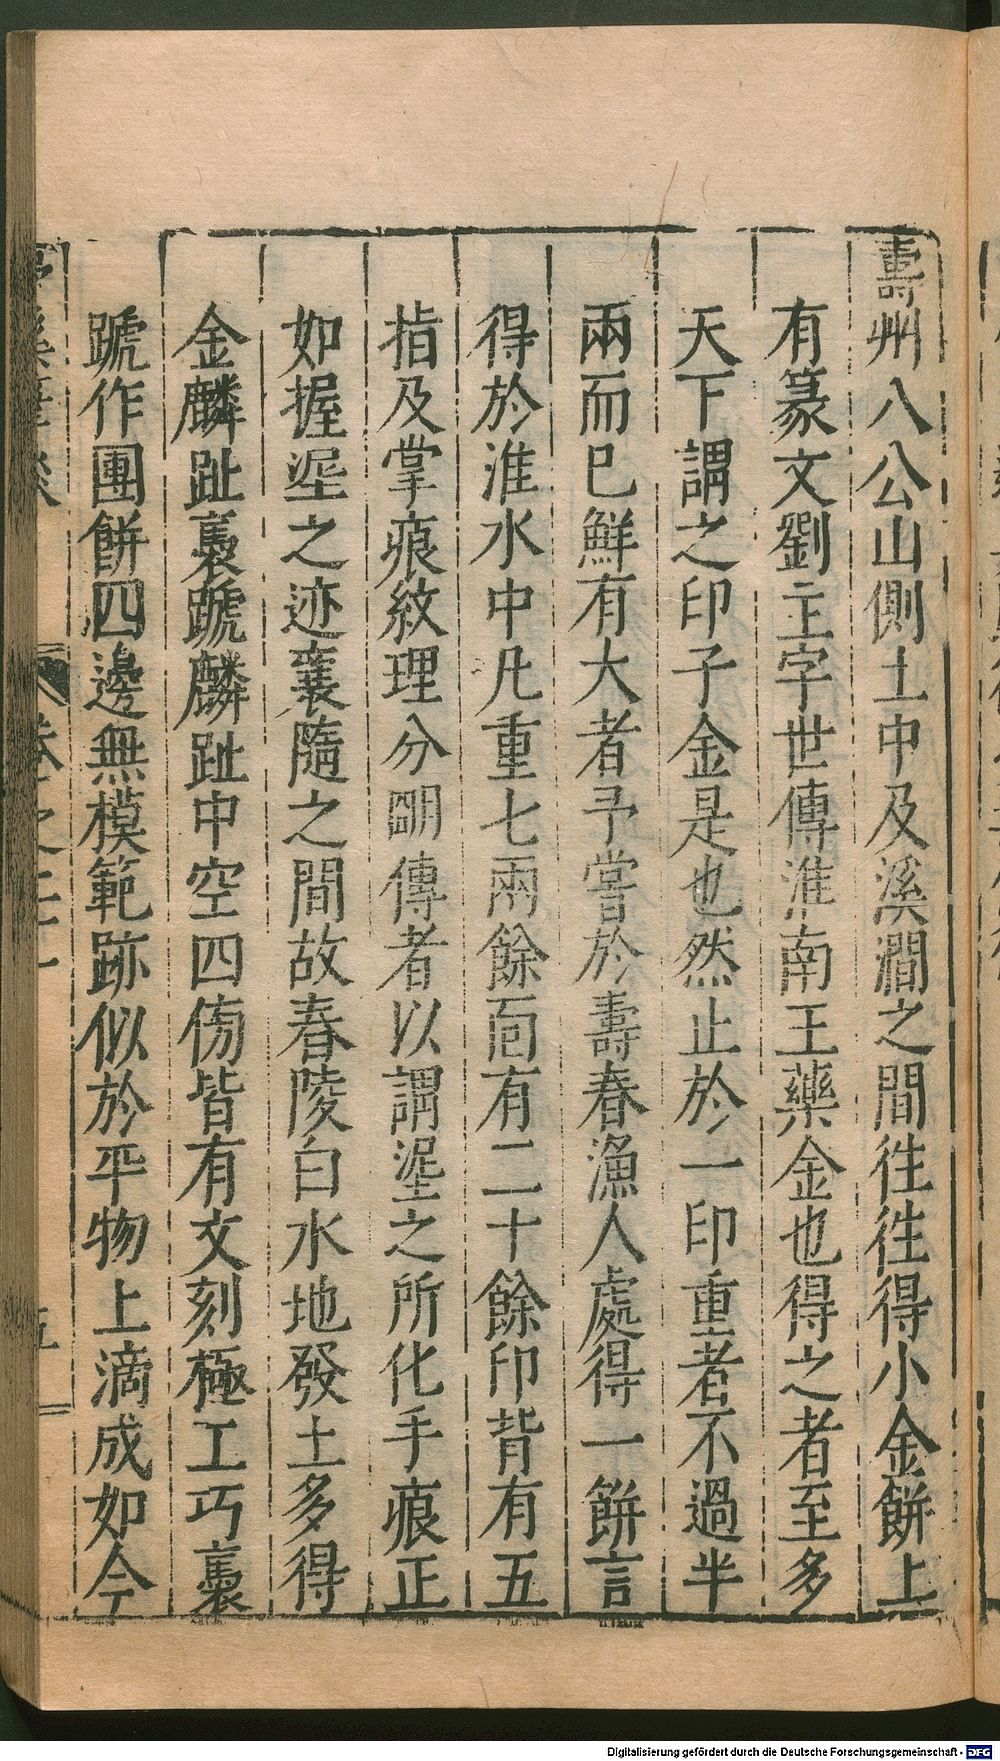 壽州八公山側土中及溪澗之間徃徃得小金餅上
有篆文劉主字世傳淮南王藥金也得之者至多
天下謂之印子金是也然止於一印重者不過半
兩而已鮮有大者予嘗於壽春漁人處得一餅言
得於淮水中凡重七兩餘面有二十餘印背有五
指及掌痕紋理分明傳者以謂埿之所化手痕正
如握埿之迹襄隨之間故春陵白水地發土多得
金麟趾褭蹏麟趾中空四傍皆有文刻極工巧褭
蹏作團餅四邊無模範跡似於平物上滴成如今
Digitalisierung gefördert durch die Deutsche Forschungsgemeinschaft - DFG